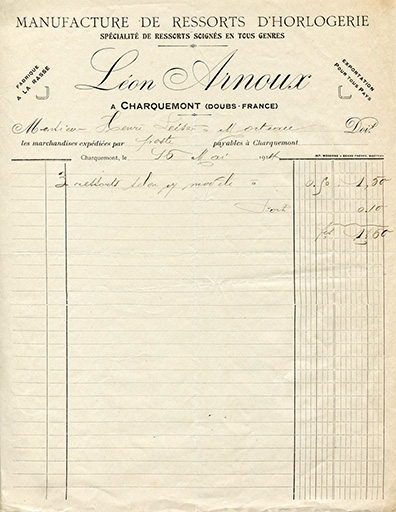 MANUFACTURE DE RESSORTS D'HORLOGERIE
SPÉCIALITÉ DE RESSORTS SOIGNÉS EN TOUS GENRES
FABRIQUE
A LA RASSE
Léon Arnoux
EXPORTATION
POUR TOUS PAYS
A CHARQUEMONT (DOUBS-FRANCE)
Monsieur Henri à Morteau Doit
les marchandises expédiées par poste payables à Charquemont
Charquemont, le 15 Mai 1914
3 ressorts selon modèle 0.50 1,50
Port 0.10
1,60